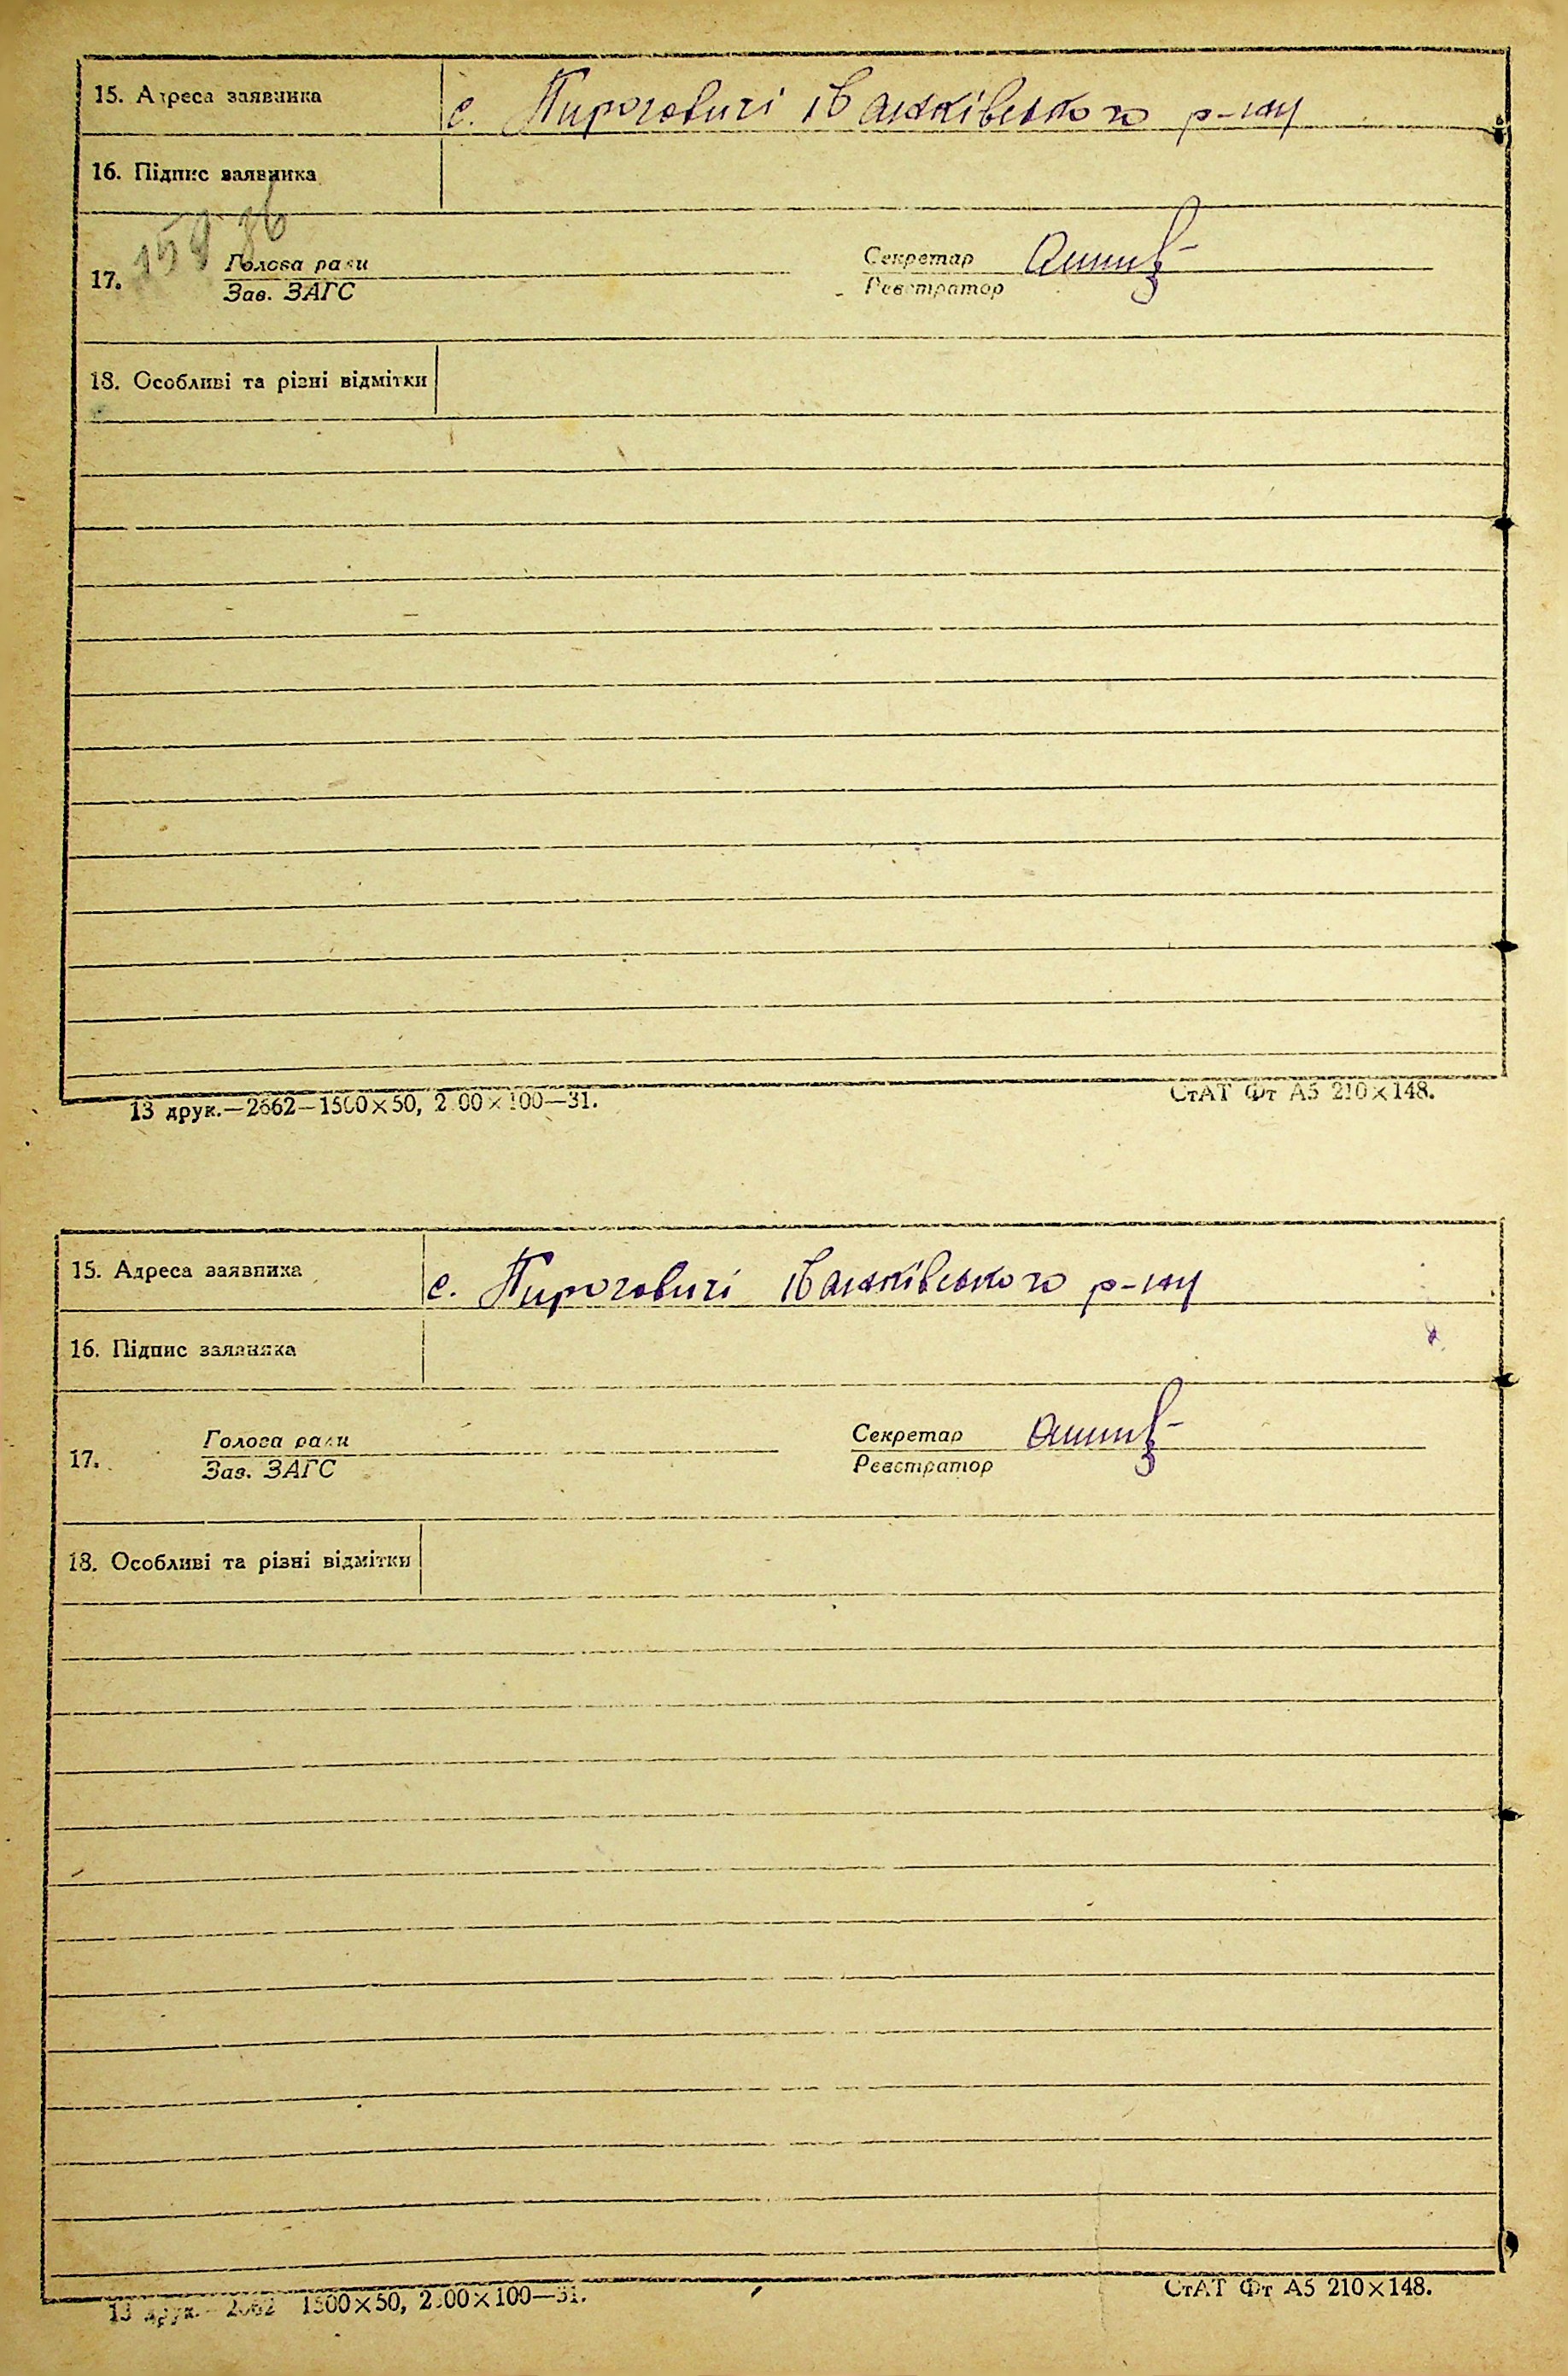 15. Адреса заявника с. Пироговичі Іванківського р-ну
16. Підпис заявника
17. Голова ради Секретар
Зав. ЗАГС Реєстратор
18. Особливі та різні відмітки
13 друк.—2662—1500×50, 2 00×100—31. СтАТ Фт А5 210×148.
15. Адреса заявника с. Пироговичі Іванківського р-ну
16. Підпис заявника
17. Голова ради Секретар
Зав. ЗАГС Реєстратор
18. Особливі та різні відмітки
13 друк.—2662 1500×50, 2 00×100—31. СтАТ Фт А5 210×148.